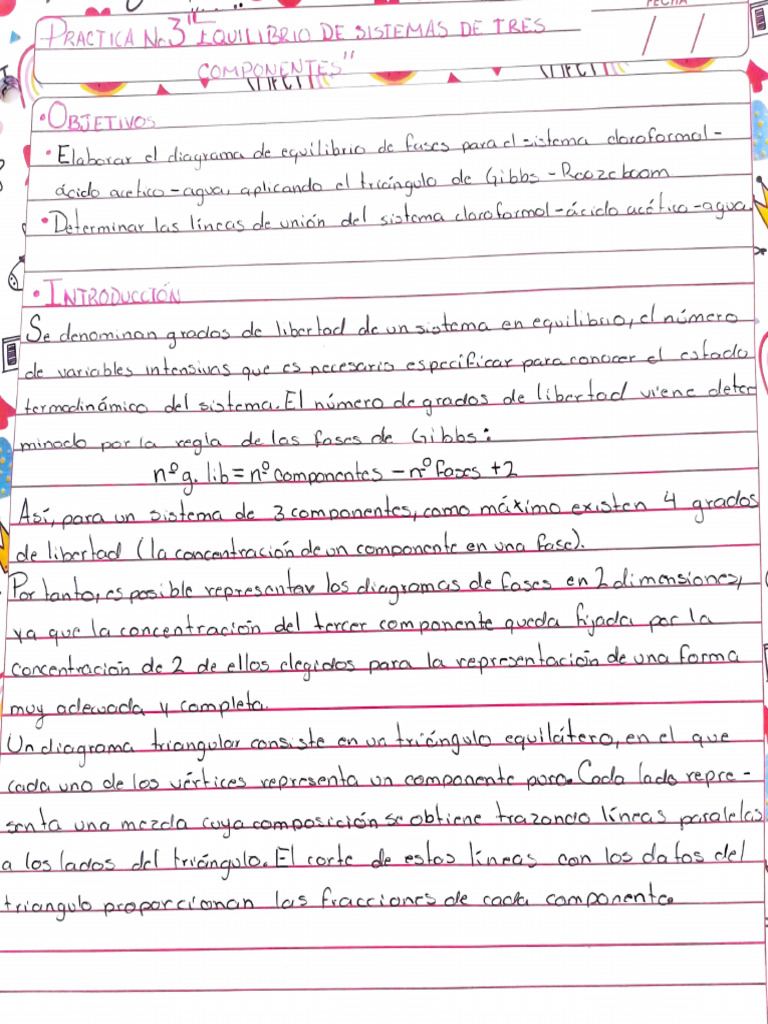 FECHA
PRACTICA No.3 "EQUILIBRIO DE SISTEMAS DE TRES
COMPONENTES"
/ /
• OBJETIVOS
• Elaborar el diagrama de equilibrio de fases para el sistema cloroformol-
ácido acetico-agua, aplicando el triángulo de Gibbs-Roozeboom
• Determinar las líneas de unión del sistema cloroformol-ácido acético-agua
• INTRODUCCIÓN
Se denominan grados de libertad de un sistema en equilibrio, el número
de variables intensivas que es necesario especificar para conocer el estado
termodinámico del sistema. El número de grados de libertad viene deter
minado por la regla de las fases de Gibbs:
nº g. lib = nº componentes - nº fases + 2
Así, para un sistema de 3 componentes, como máximo existen 4 grados
de libertad (la concentración de un componente en una fase).
Por tanto, es posible representar los diagramas de fases en 2 dimensiones,
ya que la concentración del tercer componente queda fijada por la
concentración de 2 de ellos elegidos para la representación de una forma
muy adecuada y completa.
Un diagrama triangular consiste en un triángulo equilátero, en el que
cada uno de los vértices representa un componente puro. Cada lado repre-
senta una mezcla cuya composición se obtiene trazando líneas paralelas
a los lados del triángulo. El corte de estos líneas con los datos del
triangulo proporcionan las fracciones de cada componente.